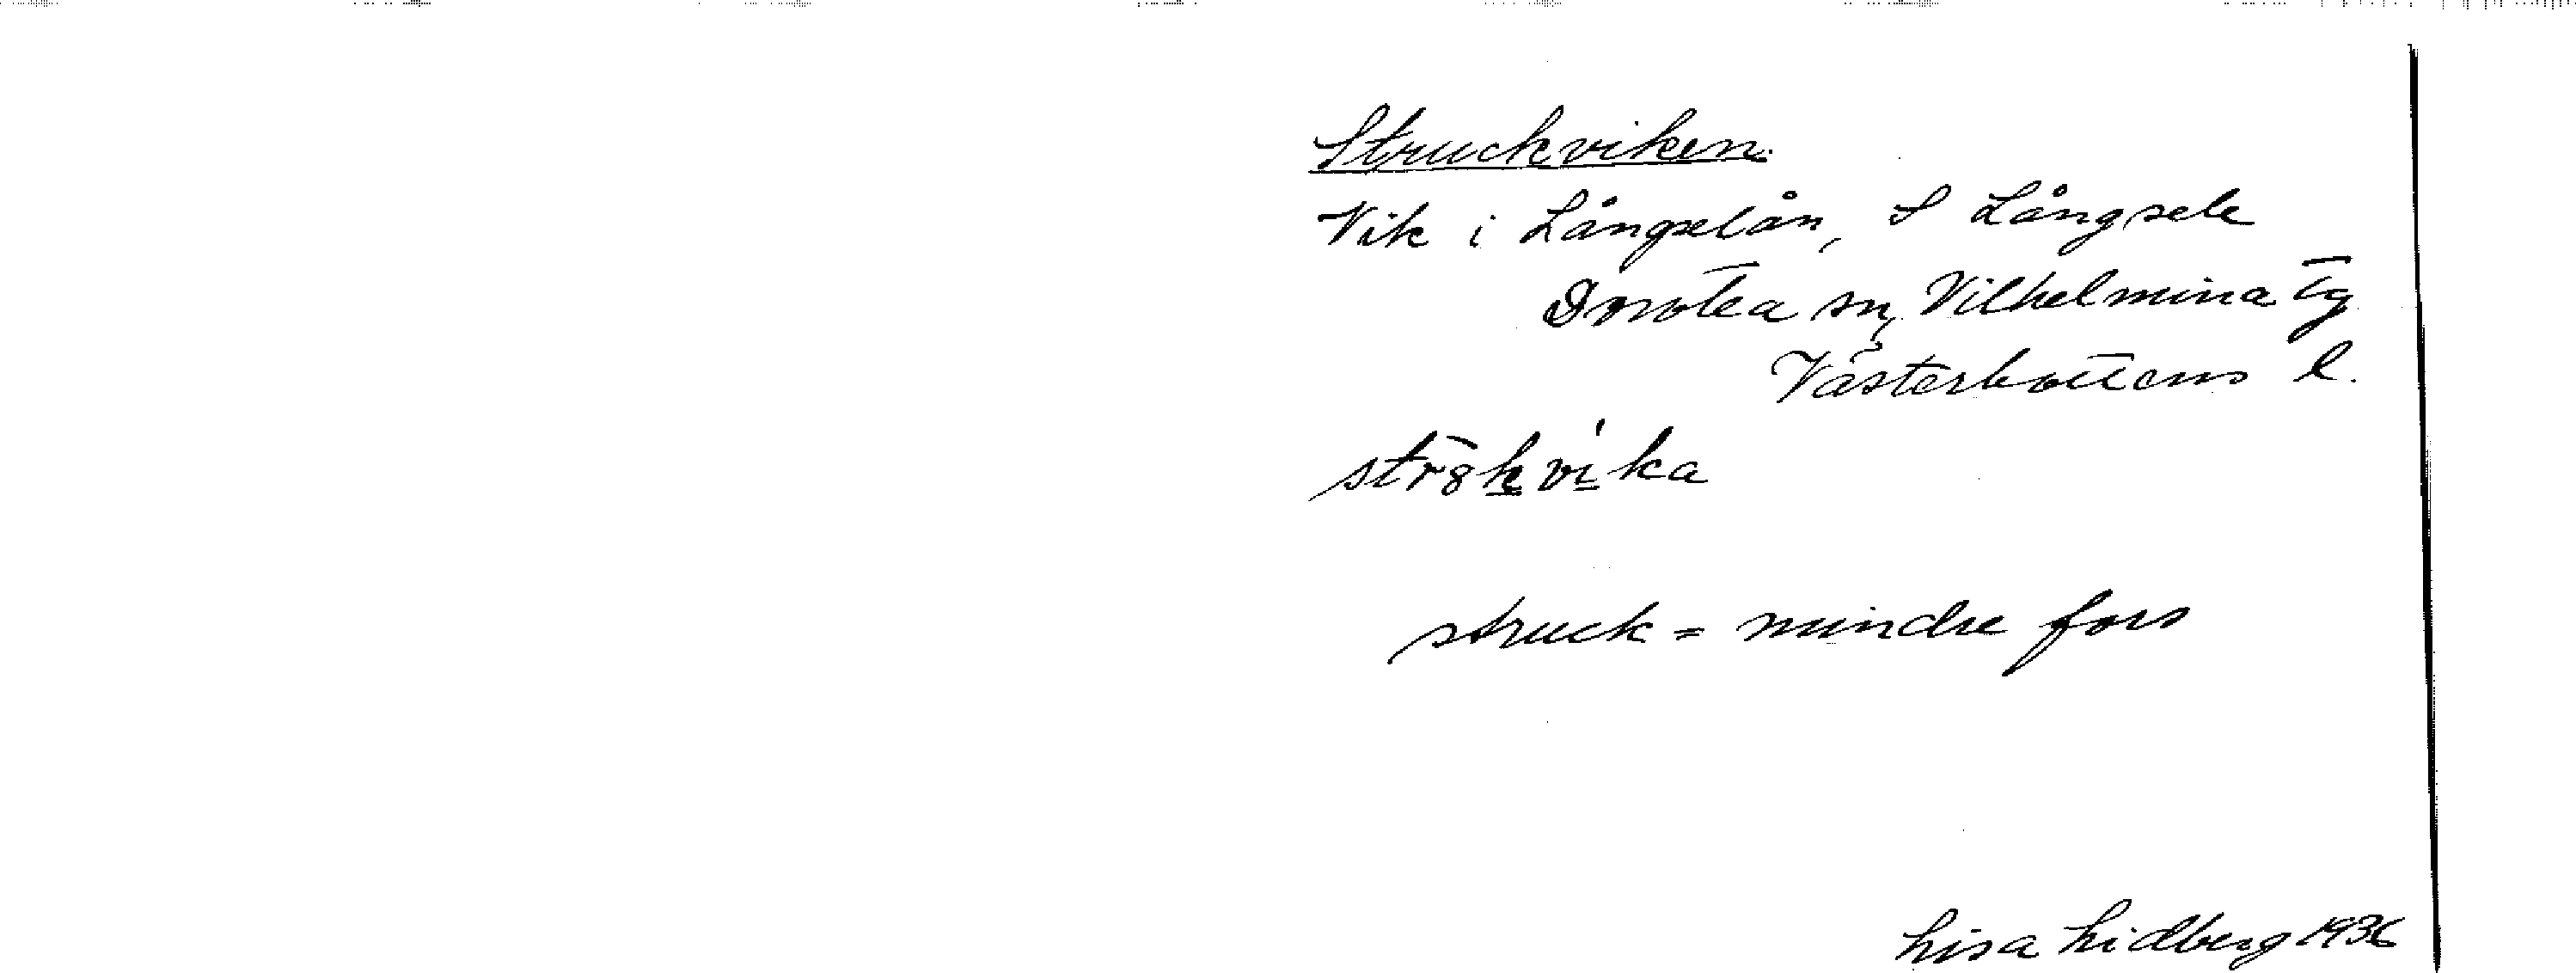 Struckviken.
Vik i Långselån, S Långsele
Dorotea sn, Vilhelmina tg
Västerbottens l.
strȣkvi̠ka
struck = mindre fors
Lisa Lidberg 1936